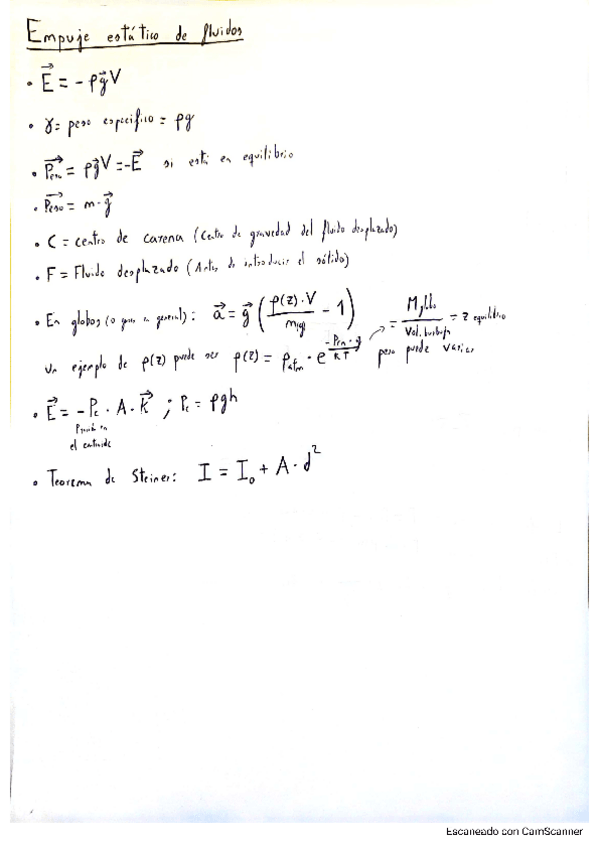 Empuje estático de fluidos
• E⃗ = - ρg⃗V
• γ = peso específico = ρg
• = ρg⃗V = -E⃗ si está en equilibrio
• Peso = m·g⃗
• C = centro de carena (Centro de gravedad del fluido desplazado)
• F = Fluido desplazado (Antes de introducir el sólido)
• En globos (o gases en general): a⃗ = g⃗ (ρ(z)·V / m - 1) = M / Vol. = z equilibrio
Un ejemplo de ρ(z) puede ser ρ(z) = ρatm · e pero puede variar
• E⃗ = - Pc · A · K⃗ ; Pc = ρgh
el centroide
• Teorema de Steiner: I = I₀ + A · d²
Escaneado con CamScanner